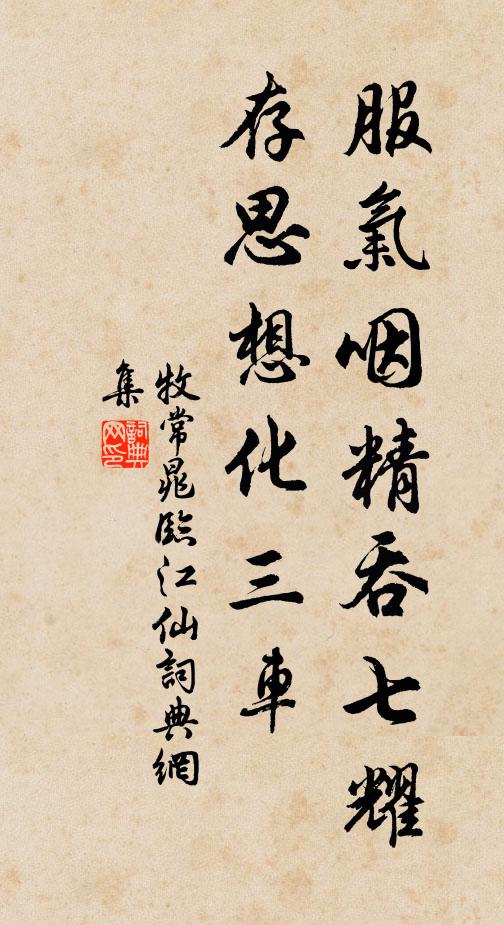 服氣咽精吞七耀
存思想化三車
牧常晁臨江仙詞典網
集
詞典
网印